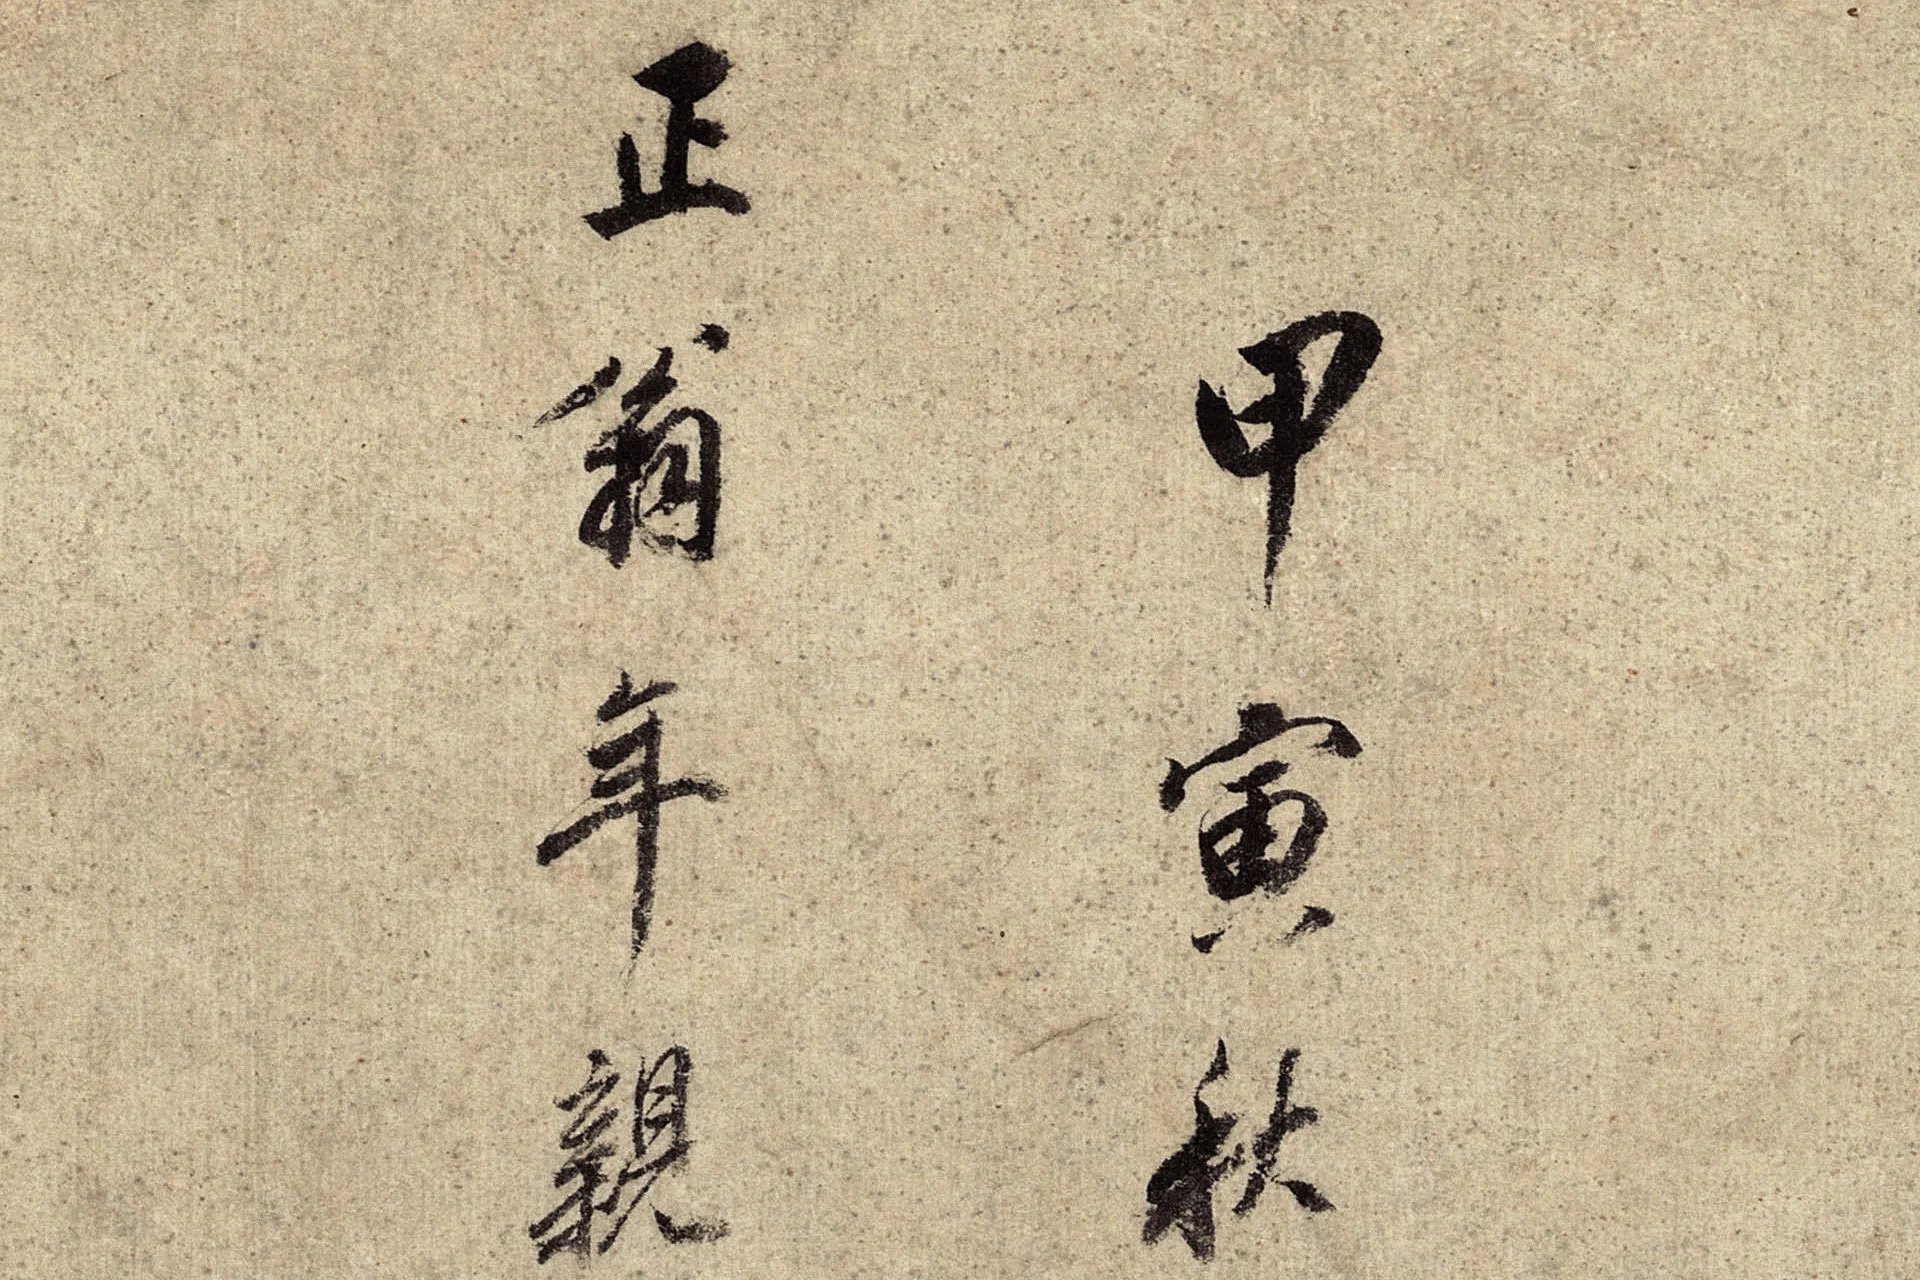 甲寅秋
正翁年親